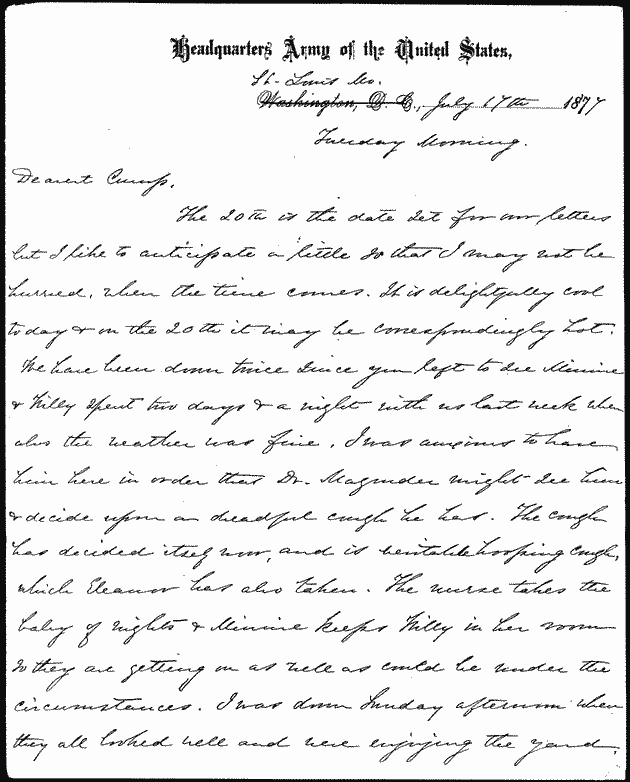 Headquarters Army of the United States,
St. Louis Mo.
Washington, D. C., July 17th 1877
Tuesday Morning.
Dearest Cump,
The 20th is the date set for our letters
but I like to anticipate a little so that I may not be
hurried, when the time comes. It is delightfully cool
today & on the 20th it may be correspondingly hot.
We have been down twice since you left to see Minnie
& Willy spent two days & a night with us last week when
also the weather was fine. I was anxious to have
him here in order that Dr. Magruder might see him
& decide upon a dreadful cough he has. The cough
has decided itself now, and is veritable hooping cough,
which Eleanor has also taken. The nurse takes the
baby of nights & Minnie keeps Willy in her room
so they are getting on as well as could be under the
circumstances. I was down Sunday afternoon when
they all looked well and were enjoying the yard.